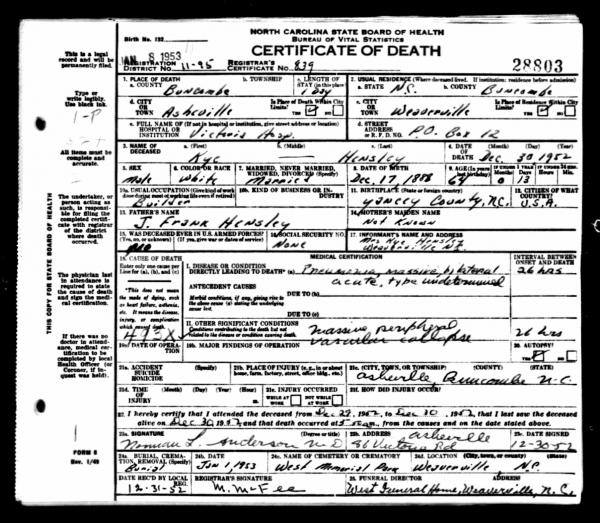 NORTH CAROLINA STATE BOARD OF HEALTH
BUREAU OF VITAL STATISTICS
CERTIFICATE OF DEATH
Birth No. 132
JAN 8 1953
REGISTRATION DISTRICT No. 11-95 REGISTRAR'S CERTIFICATE No. 839
28803
This is a legal record and will be permanently filed.
Type or write legibly. Use black ink.
1-P
All items must be complete and accurate.
The undertaker, or person acting as such, is responsible for filing the completed certificate with registrar of the district where death occurred.
The physician last in attendance is required to state the cause of death and sign the medical certification.
If there was no doctor in attendance, medical certification to be completed by local Health Officer (or Coroner, if inquest was held).
THIS COPY FOR STATE BOARD OF HEALTH
FORM 8
Rev. 1/49
1. PLACE OF DEATH
a. COUNTY Buncombe
b. TOWNSHIP
c. LENGTH OF STAY (in this place) 1 day
2. USUAL RESIDENCE (Where deceased lived. If institution: residence before admission)
a. STATE N.C.
b. COUNTY Buncombe
d. CITY OR TOWN Asheville
Is Place of Death Within City Limits? YES NO
c. CITY OR TOWN Weaverville
Is Place of Residence Within City Limits? YES NO
e. FULL NAME OF (If not in hospital or institution, give street address or location) HOSPITAL OR INSTITUTION Victoria Hosp.
d. STREET ADDRESS OR R.F.D. NO. P.O. Box 12
3. NAME OF DECEASED
a. (First) Nye
b. (Middle)
c. (Last) Hensley
4. DATE OF DEATH (Month) (Day) (Year) Dec. 30 1952
5. SEX Male
6. COLOR OR RACE White
7. MARRIED, NEVER MARRIED, WIDOWED, DIVORCED (Specify) Married
8. DATE OF BIRTH Dec. 17, 1888
9. AGE (In years last birthday) 64 0 13
10a. USUAL OCCUPATION (Give kind of work done during most of working life, even if retired) Builder
10b. KIND OF BUSINESS OR INDUSTRY
11. BIRTHPLACE (State or foreign country) Yancey County, N.C.
12. CITIZEN OF WHAT COUNTRY? U.S.A.
13. FATHER'S NAME J. Frank Hensley
14. MOTHER'S MAIDEN NAME Not Known
15. WAS DECEASED EVER IN U.S. ARMED FORCES? (Yes, no, or unknown) (If yes, give war or dates of service) No
16. SOCIAL SECURITY NO. None
17. INFORMANT'S NAME AND ADDRESS Mrs Nye Hensley
Weaverville NC
18. CAUSE OF DEATH
Enter only one cause per line for (a), (b), and (c)
MEDICAL CERTIFICATION
INTERVAL BETWEEN ONSET AND DEATH
I. DISEASE OR CONDITION DIRECTLY LEADING TO DEATH* (a) Pneumonia, massive, bilateral 26 hrs
acute, type undetermined
*This does not mean the mode of dying, such as heart failure, asthenia, etc. It means the disease, injury, or complication which caused death.
ANTECEDENT CAUSES
Morbid conditions, if any, giving rise to the above cause (a) stating the underlying cause last.
DUE TO (b)
DUE TO (c)
II. OTHER SIGNIFICANT CONDITIONS
Conditions contributing to the death but not related to the disease or condition causing death.
massive peripheral vascular collapse 26 hrs
493X
19a. DATE OF OPERATION
19b. MAJOR FINDINGS OF OPERATION
20. AUTOPSY? YES NO
21a. ACCIDENT SUICIDE HOMICIDE
21b. PLACE OF INJURY (e.g., in or about home, farm, factory, street, office bldg., etc.)
21c. (CITY, TOWN, OR TOWNSHIP) (COUNTY) (STATE)
Asheville Buncombe N.C.
21d. TIME OF INJURY (Month) (Day) (Year) (Hour)
21e. INJURY OCCURRED WHILE AT WORK NOT WHILE AT WORK
21f. HOW DID INJURY OCCUR?
22. I hereby certify that I attended the deceased from Dec 29, 1952, to Dec 30, 1952, that I last saw the deceased
alive on Dec 30, 1952, and that death occurred at m., from the causes and on the date stated above.
23a. SIGNATURE (Degree or title) Norman L. Anderson M D
23b. ADDRESS Asheville
86 Victoria Rd
23c. DATE SIGNED 12-30-52
24a. BURIAL, CREMATION, REMOVAL (Specify) Burial
24b. DATE Jan 1, 1953
24c. NAME OF CEMETERY OR CREMATORY West Memorial Park
24d. LOCATION (City, town, or county) (State) Weaverville, N.C.
DATE REC'D BY LOCAL REG. 12-31-52
REGISTRAR'S SIGNATURE M. McFee
25. FUNERAL DIRECTOR ADDRESS
West Funeral Home, Weaverville, N.C.